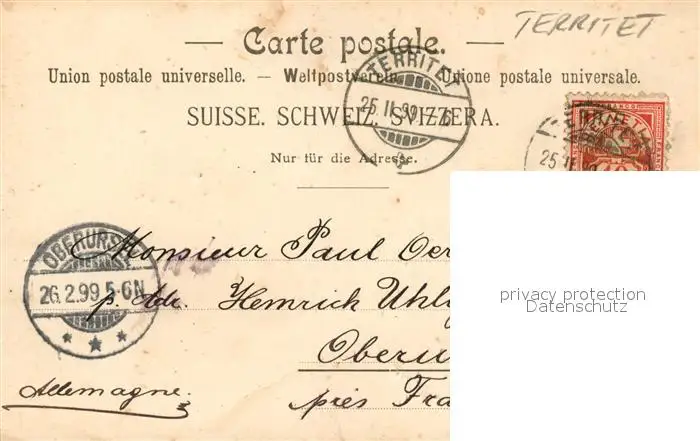 TERRITET
— Carte postale. —
Union postale universelle. — Weltpostverein. — Unione postale universale.
SUISSE. SCHWEIZ. SVIZZERA.
Nur für die Adresse.
TERRITET
25. II. 99.
25. II.
FRANCO
10
OBERURS
26.2.99 5-6N
Monsieur Paul Oer
p. Adr. Heinrich Uhl
Oberu
près Fra
Allemagne.
privacy protection
Datenschutz